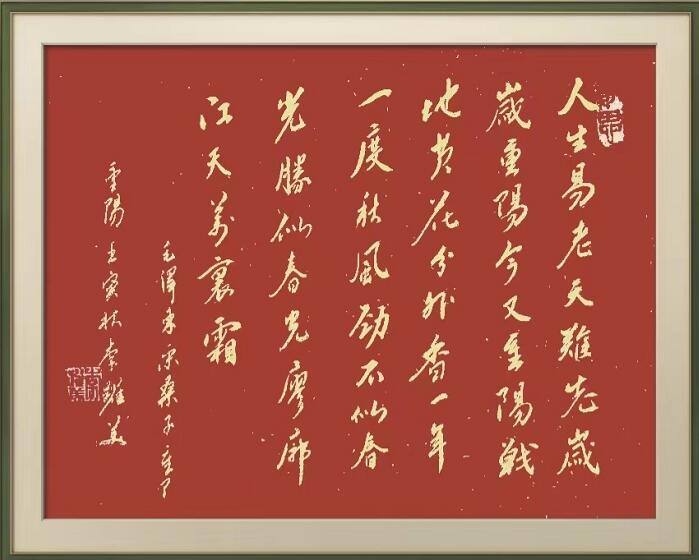 人生易老天難老歲
歲重陽今又重陽戰
地黄花分外香一年
一度秋風勁不似春
光勝似春光廖廓
江天萬裏霜
毛澤東采桑子重陽
重陽壬寅秋